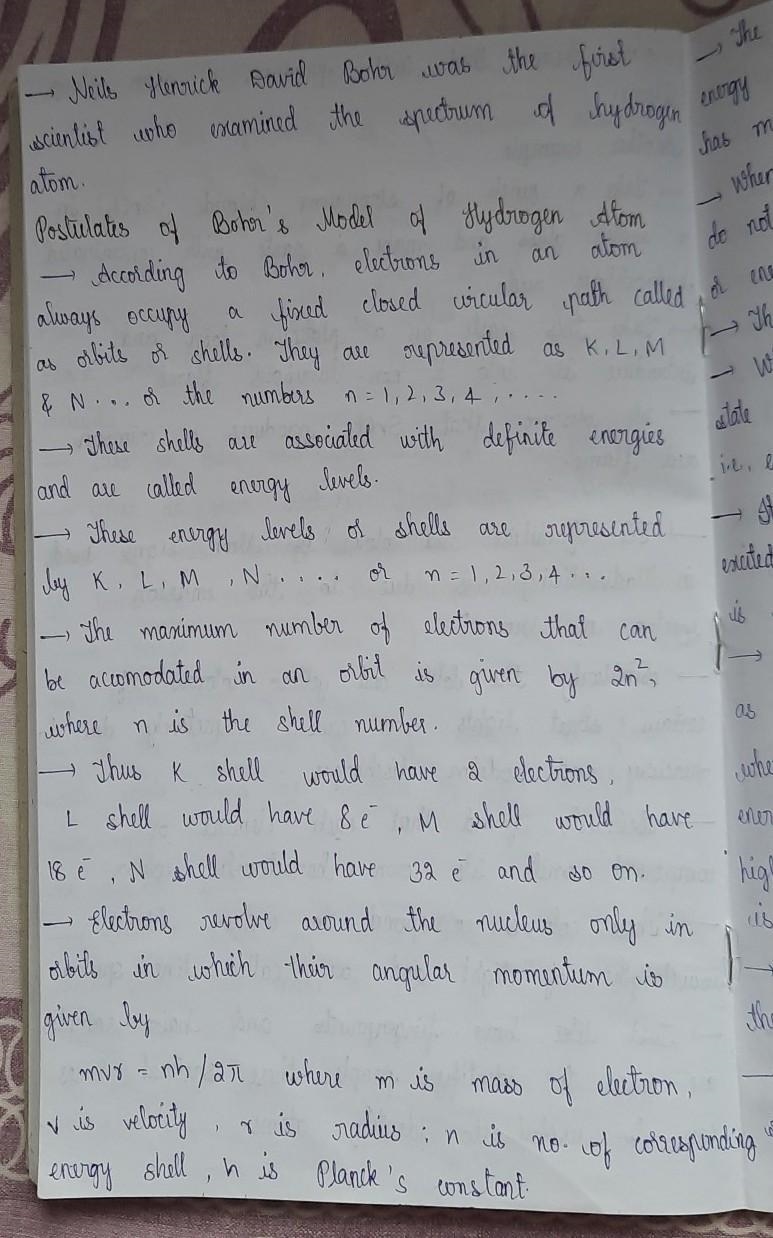 → Neils Henrick David Bohr was the first
scientist who examined the spectrum of hydrogen
atom.
Postulates of Bohr's Model of Hydrogen Atom
→ According to Bohr, electrons in an atom
always occupy a fixed closed circular path called
as orbits or shells. They are represented as K, L, M
& N... or the numbers n = 1, 2, 3, 4, .....
→ These shells are associated with definite energies
and are called energy levels.
→ These energy levels or shells are represented
by K, L, M, N..... or n = 1, 2, 3, 4...
→ The maximum number of electrons that can
be accomodated in an orbit is given by 2n²,
where n is the shell number.
→ Thus K shell would have 2 electrons,
L shell would have 8 e⁻, M shell would have
18 e⁻, N shell would have 32 e⁻ and so on.
→ Electrons revolve around the nucleus only in
orbits in which their angular momentum is
given by
mvr = nh/2π where m is mass of electron,
v is velocity, r is radius; n is no. of corresponding
energy shell, h is Planck's constant.
→ The
energy
has m
→ When
do not
or ene
→ Th
→ W
state
i.e., e
→
excited
is
→
as
whe
ener
high
is
→
the